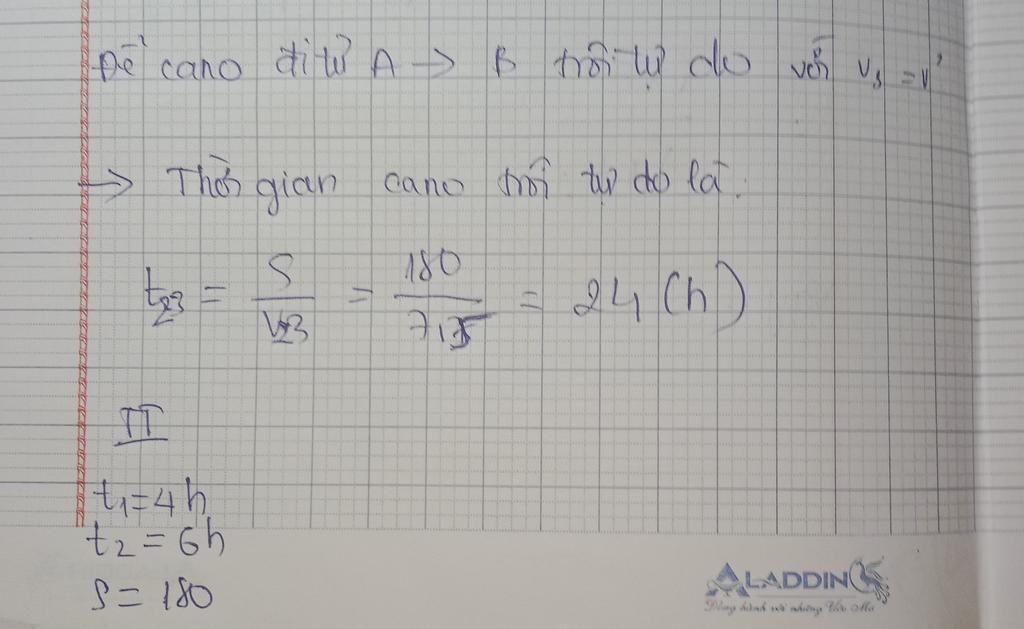 Để cano đi từ A → B trôi tự do với v₃ = v'
→ Thời gian cano trôi tự do là:
t₂₃ = S / V₂₃ = 180 / 7,5 = 24 (h)
TT
t₁ = 4h
t₂ = 6h
S = 180
ALADDIN
Đồng hành với những Ước Mơ